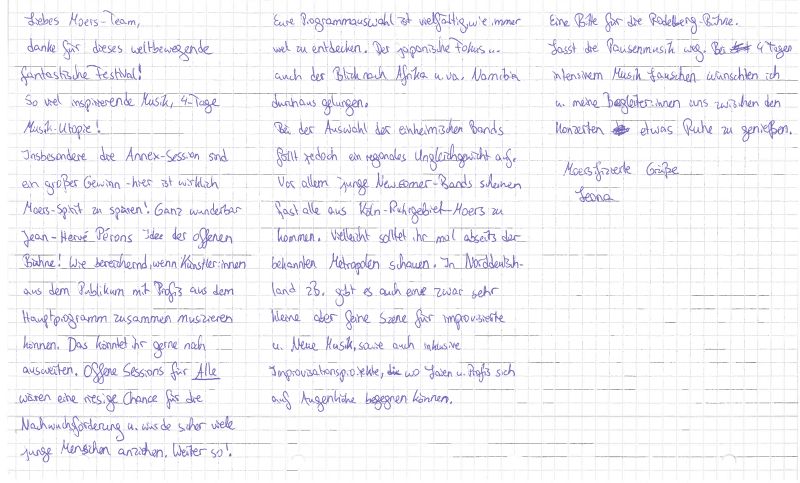 Liebes Moers-Team,
danke für dieses weltbewegende
fantastische Festival!
So viel inspirierende Musik, 4-Tage
Musik-Utopie!
Insbesondere die Annex-Session sind
ein großer Gewinn - hier ist wirklich
Moers-Spirit zu spüren! Ganz wunderbar
Jean-Hervé Pérons Idee der offenen
Bühne! Wie bereichernd, wenn Künstler:innen
aus dem Publikum mit Profis aus dem
Hauptprogramm zusammen musizieren
können. Das könntet ihr gerne noch
ausweiten. Offene Sessions für Alle
wären eine riesige Chance für die
Nachwuchsförderung u. würde sicher viele
junge Menschen anziehen. Weiter so!
Eure Programmauswahl ist vielfältig, wie immer
viel zu entdecken. Der japanische Fokus u.
auch der Blick nach Afrika u.va. Namibia
durchaus gelungen.
Bei der Auswahl der einheimischen Bands
fällt jedoch ein regionales Ungleichgewicht auf.
Vor allem junge Newcomer-Bands scheinen
fast alle aus Köln-Ruhrgebiet-Moers zu
kommen. Vielleicht solltet ihr mal abseits der
bekannten Metropolen schauen. In Norddeutsch-
land zB. gibt es auch eine zwar sehr
kleine aber feine Szene für improvisierte
u. Neue Musik, sowie auch inklusive
Improvisationsprojekte, wo Laien u. Profis sich
auf Augenhöhe begegnen können.
Eine Bitte für die Rodelberg-Bühne.
Lasst die Pausenmusik weg. Bei 4 Tagen
intensivem Musik lauschen wünschten ich
u. meine Begleiter:innen uns zwischen den
Konzerten etwas Ruhe zu genießen.
Moersifizierte Grüße
Leona